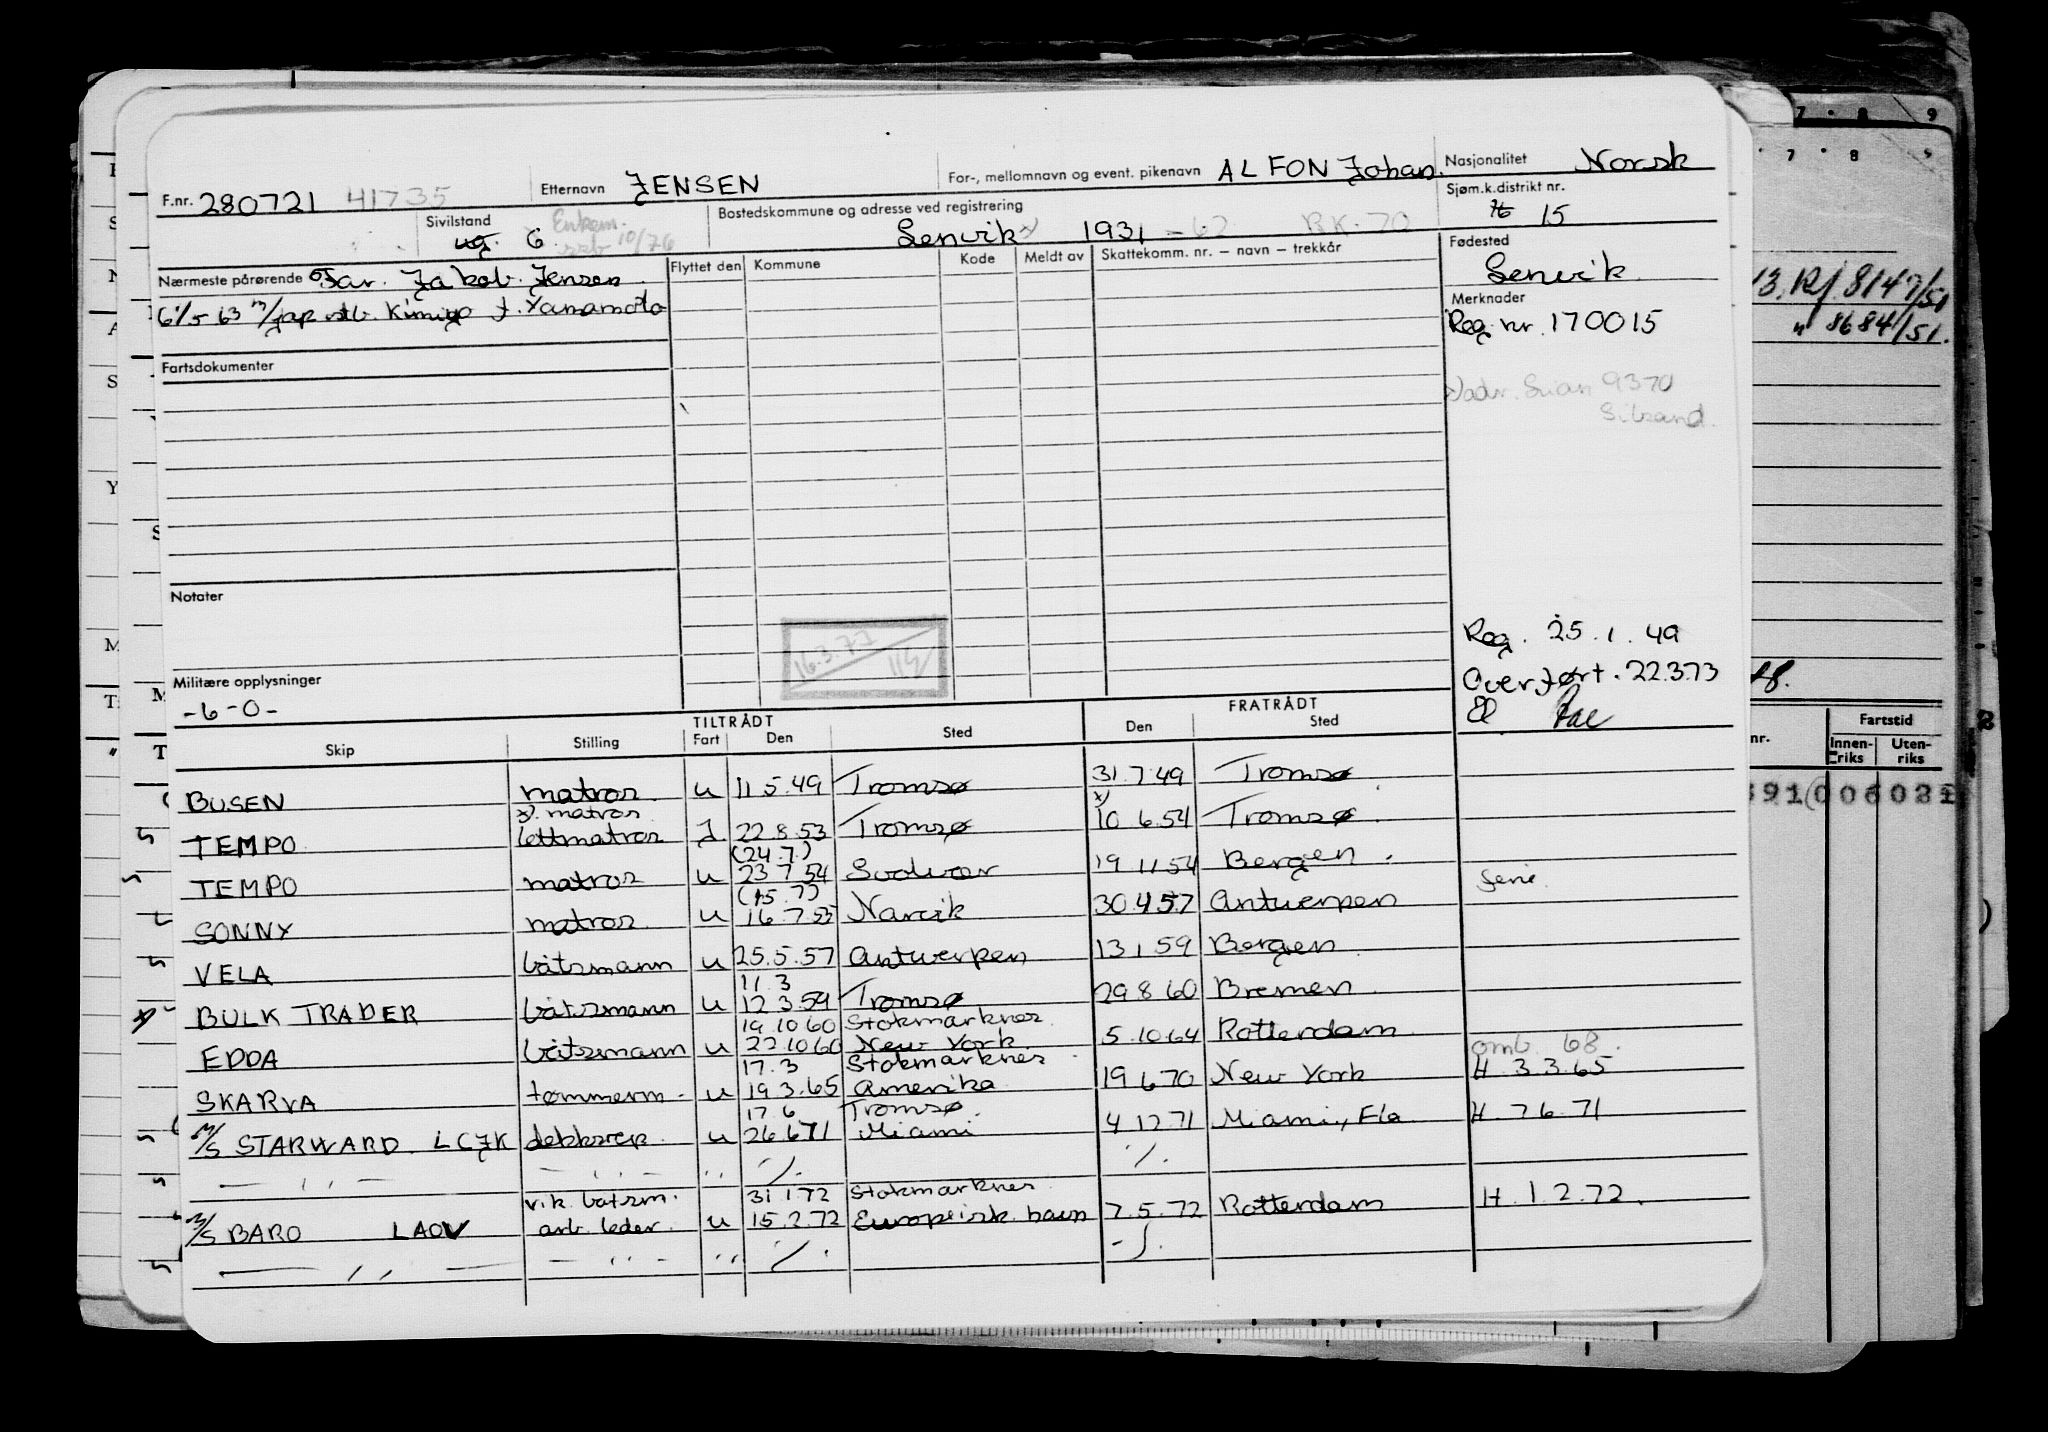 F.nr. 280721 41735 Etternavn JENSEN For-, mellomnavn og event. pikenavn ALFON Johan. Nasjonalitet Norsk
Sivilstand ug. G Enkem. 10/76 Bostedskommune og adresse ved registrering Senvik x) 1931 - 62 BK-70 Sjøm.k.distrikt nr. 15
Nærmeste pårørende Far. Jakob Jensen Flyttet den Kommune Kode Meldt av Skattekomm. nr. — navn — trekkår Fødested
Senvik
6/5 63 m/jap. f. Yanamoto
Merknader
Reg. nr. 170015
Fartsdokumenter
9370
13. Rf. 8147/51
" 8684/51.
Notater
16.3.77
Reg. 25.1.49
Overført. 22.3.73
El
Militære opplysninger
-6-0-
TILTRÅDT FRATRÅDT
Skip Stilling Fart Den Sted Den Sted
BUSEN matros u 11.5.49 Tromsø 31.7.49 Tromsø
x). matros x)
TEMPO lettmatros I 22.8.53 Tromsø 10.6.54 Tromsø
(24.7.)
TEMPO matros u 23.7.54 Svolvær 19.11.54 Bergen
(15.7)
SONNY matros u 16.7.55 Narvik 30.4.57 Antwerpen
VELA båtsmann u 25.5.57 Antwerpen 13.1.59 Bergen
11.3
BULK TRADER båtsmann u 12.3.59 Tromsø 29.8.60 Bremen
19.10.60 Stokmarknes
EDDA båtsmann u 22.10.60 New York 5.10.64 Rotterdam
omb. 68.
17.3 Stokmarknes
SKARVA tømmerm. u 19.3.65 Amerika 19.6.70 New York H. 3.3.65
17.6 Tromsø
M/S STARWARD. LCJK dekksrep. u 26.6.71 Miami 4.12.71 Miami, Fla H. 7.6.71
— ,, — — ,, — ,, ./. ./.
v.k. båtsm. 31.1.72 Stokmarknes
M/S BARO LAOV arb. leder. u 15.2.72 Europeisk havn 7.5.72 Rotterdam H. 1.2.72.
— ,, — — ,, — ,, ./. ./.
nr. Fartstid
Innen-riks Uten-riks
7 8 9